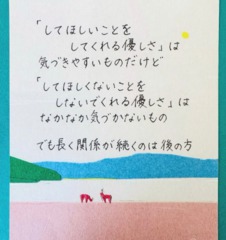 「してほしいことを
してくれる優しさ」は
気づきやすいものだけど
「してほしくないことを
しないでくれる優しさ」は
なかなか気づかないもの
でも長く関係が続くのは後の方